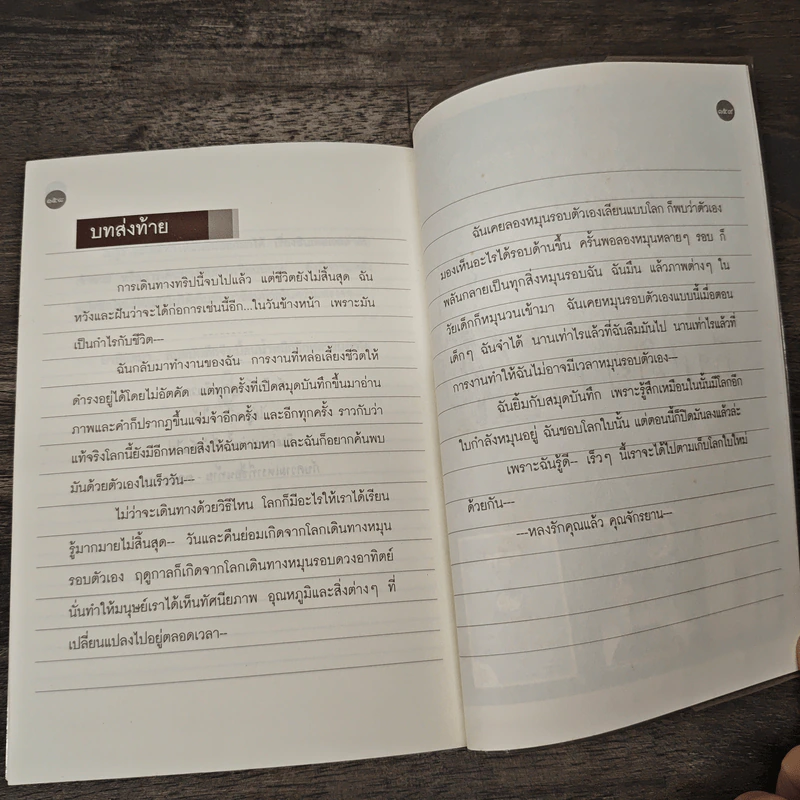 ๑๕๘
บทส่งท้าย
การเดินทางทริปนี้จบไปแล้ว แต่ชีวิตยังไม่สิ้นสุด ฉัน
หวังและฝันว่าจะได้ก่อการเช่นนี้อีก...ในวันข้างหน้า เพราะมัน
เป็นกำไรกับชีวิต--
ฉันกลับมาทำงานของฉัน การงานที่หล่อเลี้ยงชีวิตให้
ดำรงอยู่ได้โดยไม่อัตคัด แต่ทุกครั้งที่เปิดสมุดบันทึกขึ้นมาอ่าน
ภาพและคำก็ปรากฏขึ้นแจ่มจ้าอีกครั้ง และอีกทุกครั้ง ราวกับว่า
แท้จริงโลกนี้ยังมีอีกหลายสิ่งให้ฉันตามหา และฉันก็อยากค้นพบ
มันด้วยตัวเองในเร็ววัน--
ไม่ว่าจะเดินทางด้วยวิธีไหน โลกก็มีอะไรให้เราได้เรียน
รู้มากมายไม่สิ้นสุด-- วันและคืนย่อมเกิดจากโลกเดินทางหมุน
รอบตัวเอง ฤดูกาลก็เกิดจากโลกเดินทางหมุนรอบดวงอาทิตย์
นั่นทำให้มนุษย์เราได้เห็นทัศนียภาพ อุณหภูมิและสิ่งต่างๆ ที่
เปลี่ยนแปลงไปอยู่ตลอดเวลา--
๑๕๙
ฉันเคยลองหมุนรอบตัวเองเลียนแบบโลก ก็พบว่าตัวเอง
มองเห็นอะไรได้รอบด้านขึ้น ครั้นพอลองหมุนหลายๆ รอบ ก็
พลันกลายเป็นทุกสิ่งหมุนรอบฉัน ฉันมึน แล้วภาพต่างๆ ใน
วัยเด็กก็หมุนวนเข้ามา ฉันเคยหมุนรอบตัวเองแบบนี้เมื่อตอน
เด็กๆ ฉันจำได้ นานเท่าไรแล้วที่ฉันลืมมันไป นานเท่าไรแล้วที่
การงานทำให้ฉันไม่อาจมีเวลาหมุนรอบตัวเอง--
ฉันยิ้มกับสมุดบันทึก เพราะรู้สึกเหมือนในนั้นมีโลกอีก
ใบกำลังหมุนอยู่ ฉันชอบโลกใบนั้น แต่ตอนนี้ก็ปิดมันลงแล้วล่ะ
เพราะฉันรู้ดี-- เร็วๆ นี้เราจะได้ไปตามเก็บโลกใบใหม่
ด้วยกัน---
---หลงรักคุณแล้ว คุณจักรยาน--